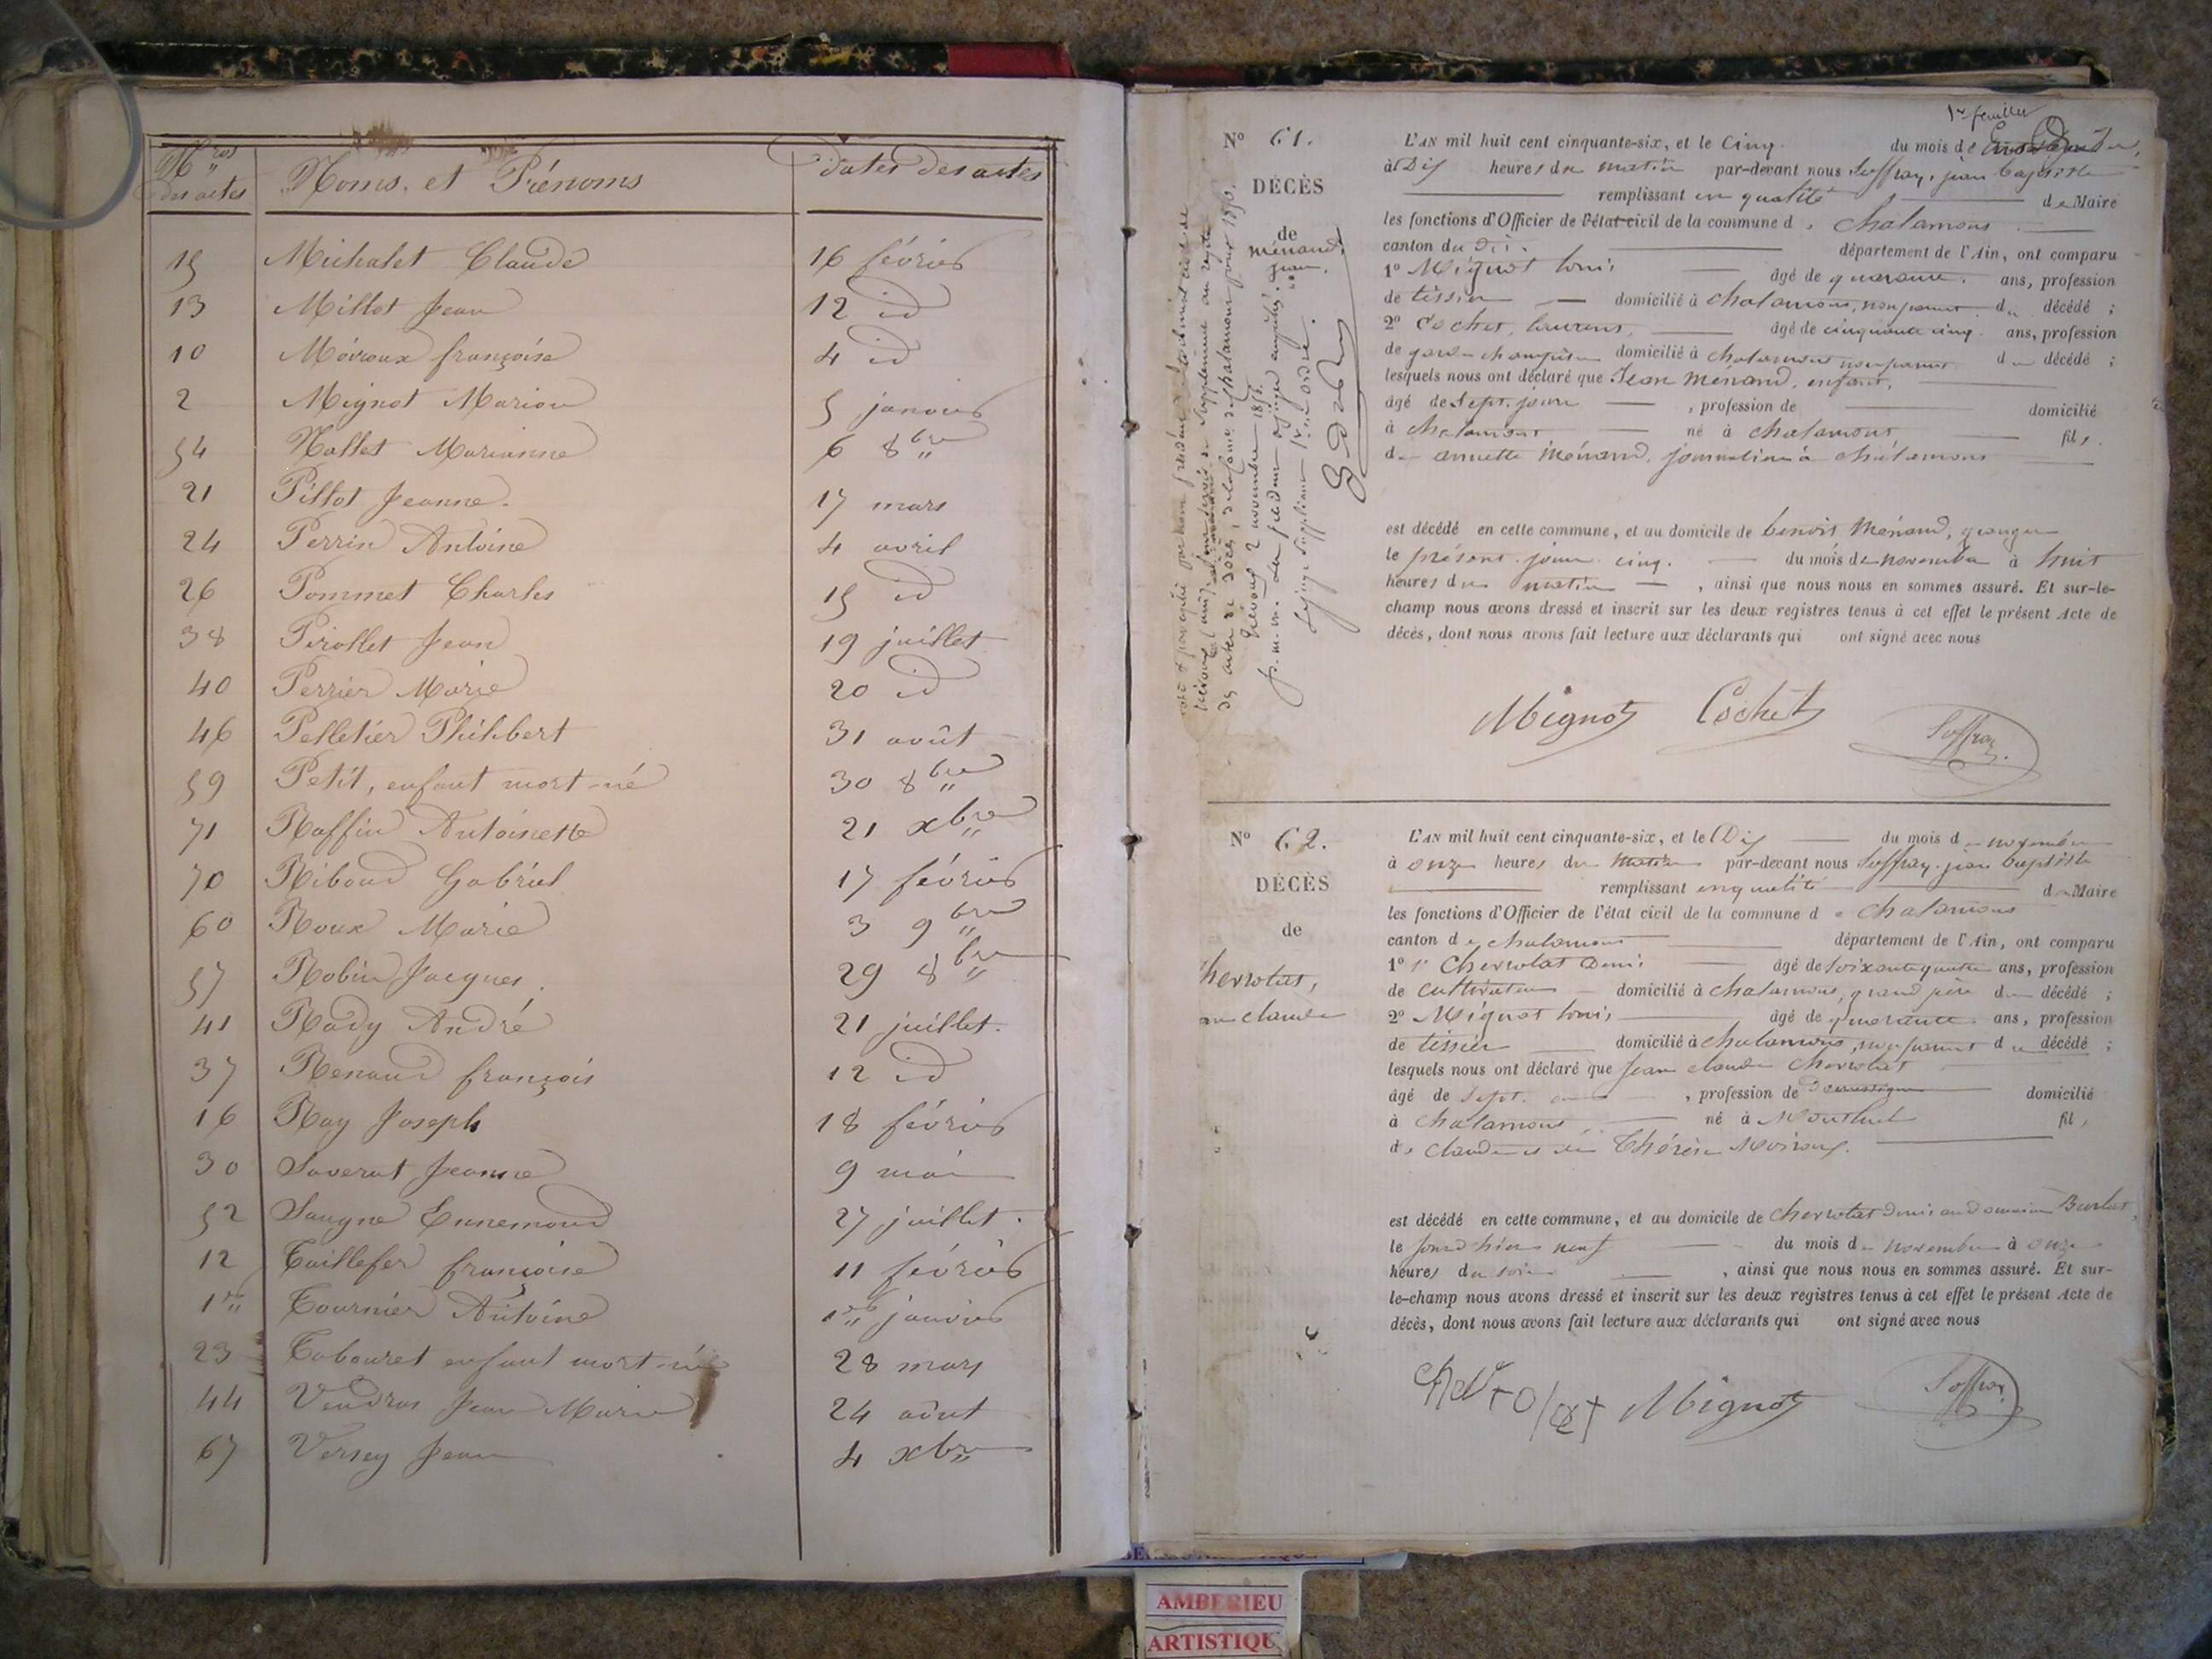 Nros des actes Noms et Prénoms Dates des actes
15 Michalet Claude 16 février
13 Millot Jean 12 id
10 Moiroux françoise 4 id
2 Mignot Marion 5 janvier
54 Nallet Marianne 6 8bre
21 Pillot Jeanne. 17 mars
24 Perrin Antoine 4 avril
26 Pommet Charles 15 id
38 Pirollet Jean 19 juillet
40 Perrier Marie 20 id
46 Pelletier Philibert 31 août
59 Petit, enfant mort-né 30 8bre
71 Raffin Antoinette 21 xbre
70 Riboud Gabriel 17 février
60 Roux Marie 3 9bre
57 Robin Jacques. 29 8bre
41 Rady André 21 juillet.
37 Renaud françois 12 id
16 Ray Joseph 18 février
30 Saverat Jeanne 9 mai
52 Saugne Ennemond 27 juillet.
12 Taillefer françoise 11 février
1er Tournier Antoine 1er janvier
23 Tabouret enfant mort-né 28 mars
44 Vendras Jean Marie 24 août
67 Versey Jean 4 xbre
1er feuillet
N° 61.
DÉCÈS
de
Ménand
jean.
L'AN mil huit cent cinquante-six, et le Cinq du mois de
à Dix heures du matin par-devant nous Soffray, jean baptiste
remplissant en qualité de Maire
les fonctions d'Officier de l'état-civil de la commune de Chalamont
canton du dit. département de l'Ain, ont comparu
1° Mignot louis âgé de quarante. ans, profession
de tissier domicilié à chalamont, non parent du décédé ;
2° Cochet, laurens, âgé de cinquante cinq. ans, profession
de garde-champêtre domicilié à chalamont non parent du décédé ;
lesquels nous ont déclaré que Jean Ménand, enfant,
âgé de sept jours , profession de domicilié
à chalamont né à chalamont fils.
de annette Ménand, journalière à chalamont
est décédé en cette commune, et au domicile de benoit Ménand, granger
le présent jour cinq. du mois de novembre à huit
heures du matin , ainsi que nous nous en sommes assuré. Et sur-le-
champ nous avons dressé et inscrit sur les deux registres tenus à cet effet le présent Acte de
décès, dont nous avons fait lecture aux déclarants qui ont signé avec nous
Mignot Cochet Soffray.
N° 62.
DÉCÈS
de
Chevrotat,
claude
L'AN mil huit cent cinquante-six, et le Dix du mois de novembre
à onze heures du matin par-devant nous Soffray jean baptiste
remplissant en qualité de Maire
les fonctions d'Officier de l'état civil de la commune de chalamont
canton de chalamont département de l'Ain, ont comparu
1° Chevrotat Denis âgé de soixante quatre ans, profession
de cultivateur domicilié à chalamont, grand père du décédé ;
2° Mignot louis âgé de quarante. ans, profession
de tissier domicilié à chalamont, non parent du décédé ;
lesquels nous ont déclaré que Jean claude Chevrotat
âgé de sept ans , profession de domicilié
à chalamont né à Montluel fils
de claude et de Thérèse Moiroux.
est décédé en cette commune, et au domicile de Chevrotat denis au domaine Burlat,
le jour d'hier neuf du mois de novembre à onze
heures du soir , ainsi que nous nous en sommes assuré. Et sur-
le-champ nous avons dressé et inscrit sur les deux registres tenus à cet effet le présent Acte de
décès, dont nous avons fait lecture aux déclarants qui ont signé avec nous
Chevrotat Mignot Soffray
AMBERIEU
ARTISTIQU